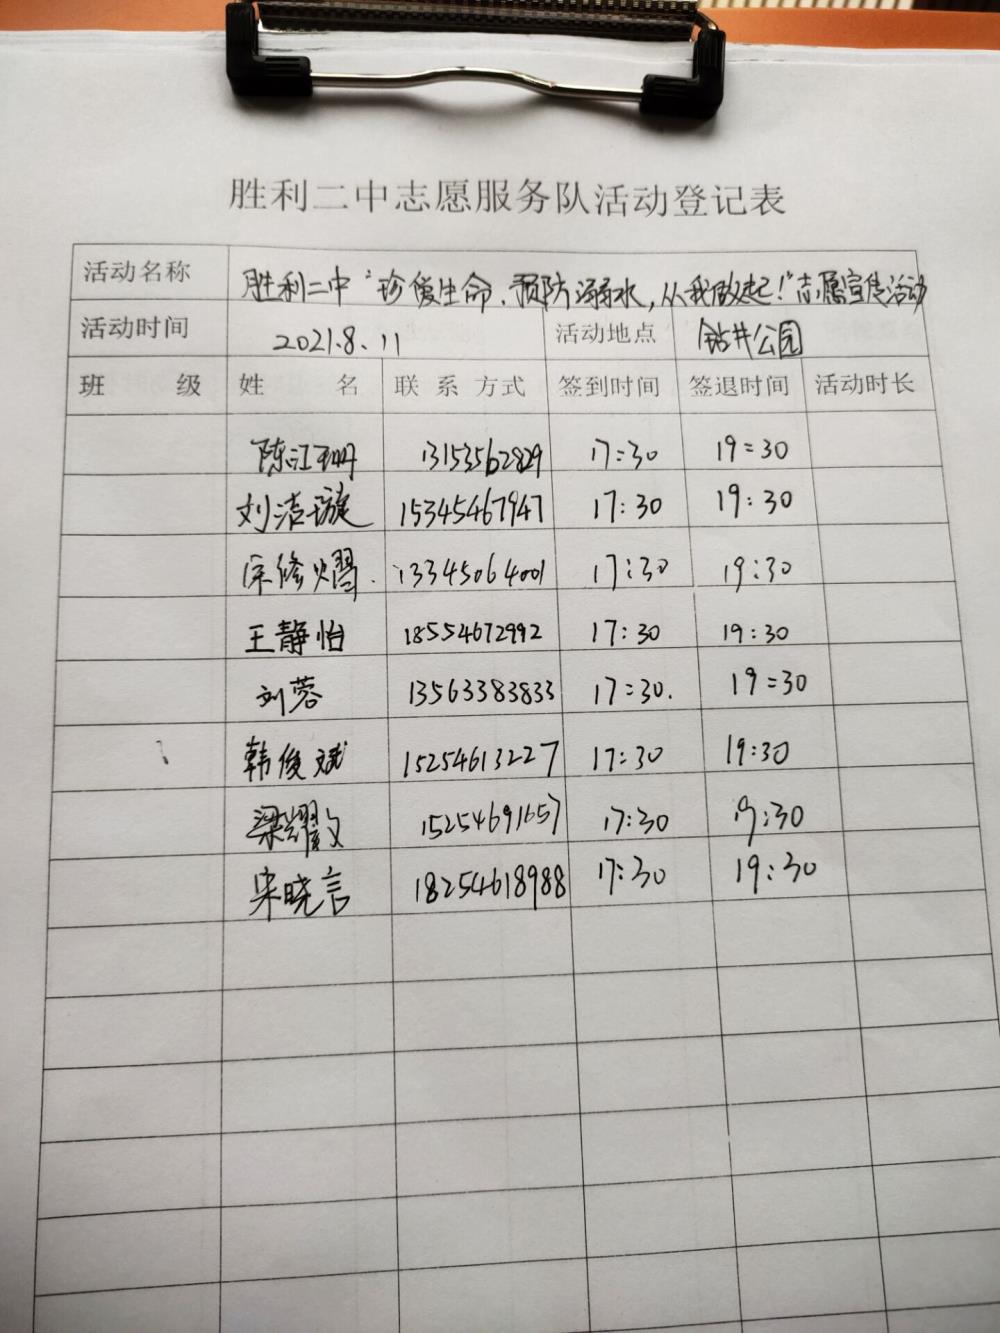 胜利二中志愿服务队活动登记表
活动名称 胜利二中“珍爱生命,预防溺水,从我做起!”志愿宣传活动
活动时间 2021.8.11 活动地点 钻井公园
班 级 姓 名 联 系 方式 签到时间 签退时间 活动时长
陈江珊 13153562829 17:30 19:30
刘洁璇 15345467947 17:30 19:30
宋修熠 13345064001 17:30 19:30
王静怡 18554672992 17:30 19:30
刘蓉 13563383833 17:30. 19:30
韩俊斌 15254613227 17:30 19:30
梁耀文 15254691657 17:30 19:30
宋晓言 18254618988 17:30 19:30